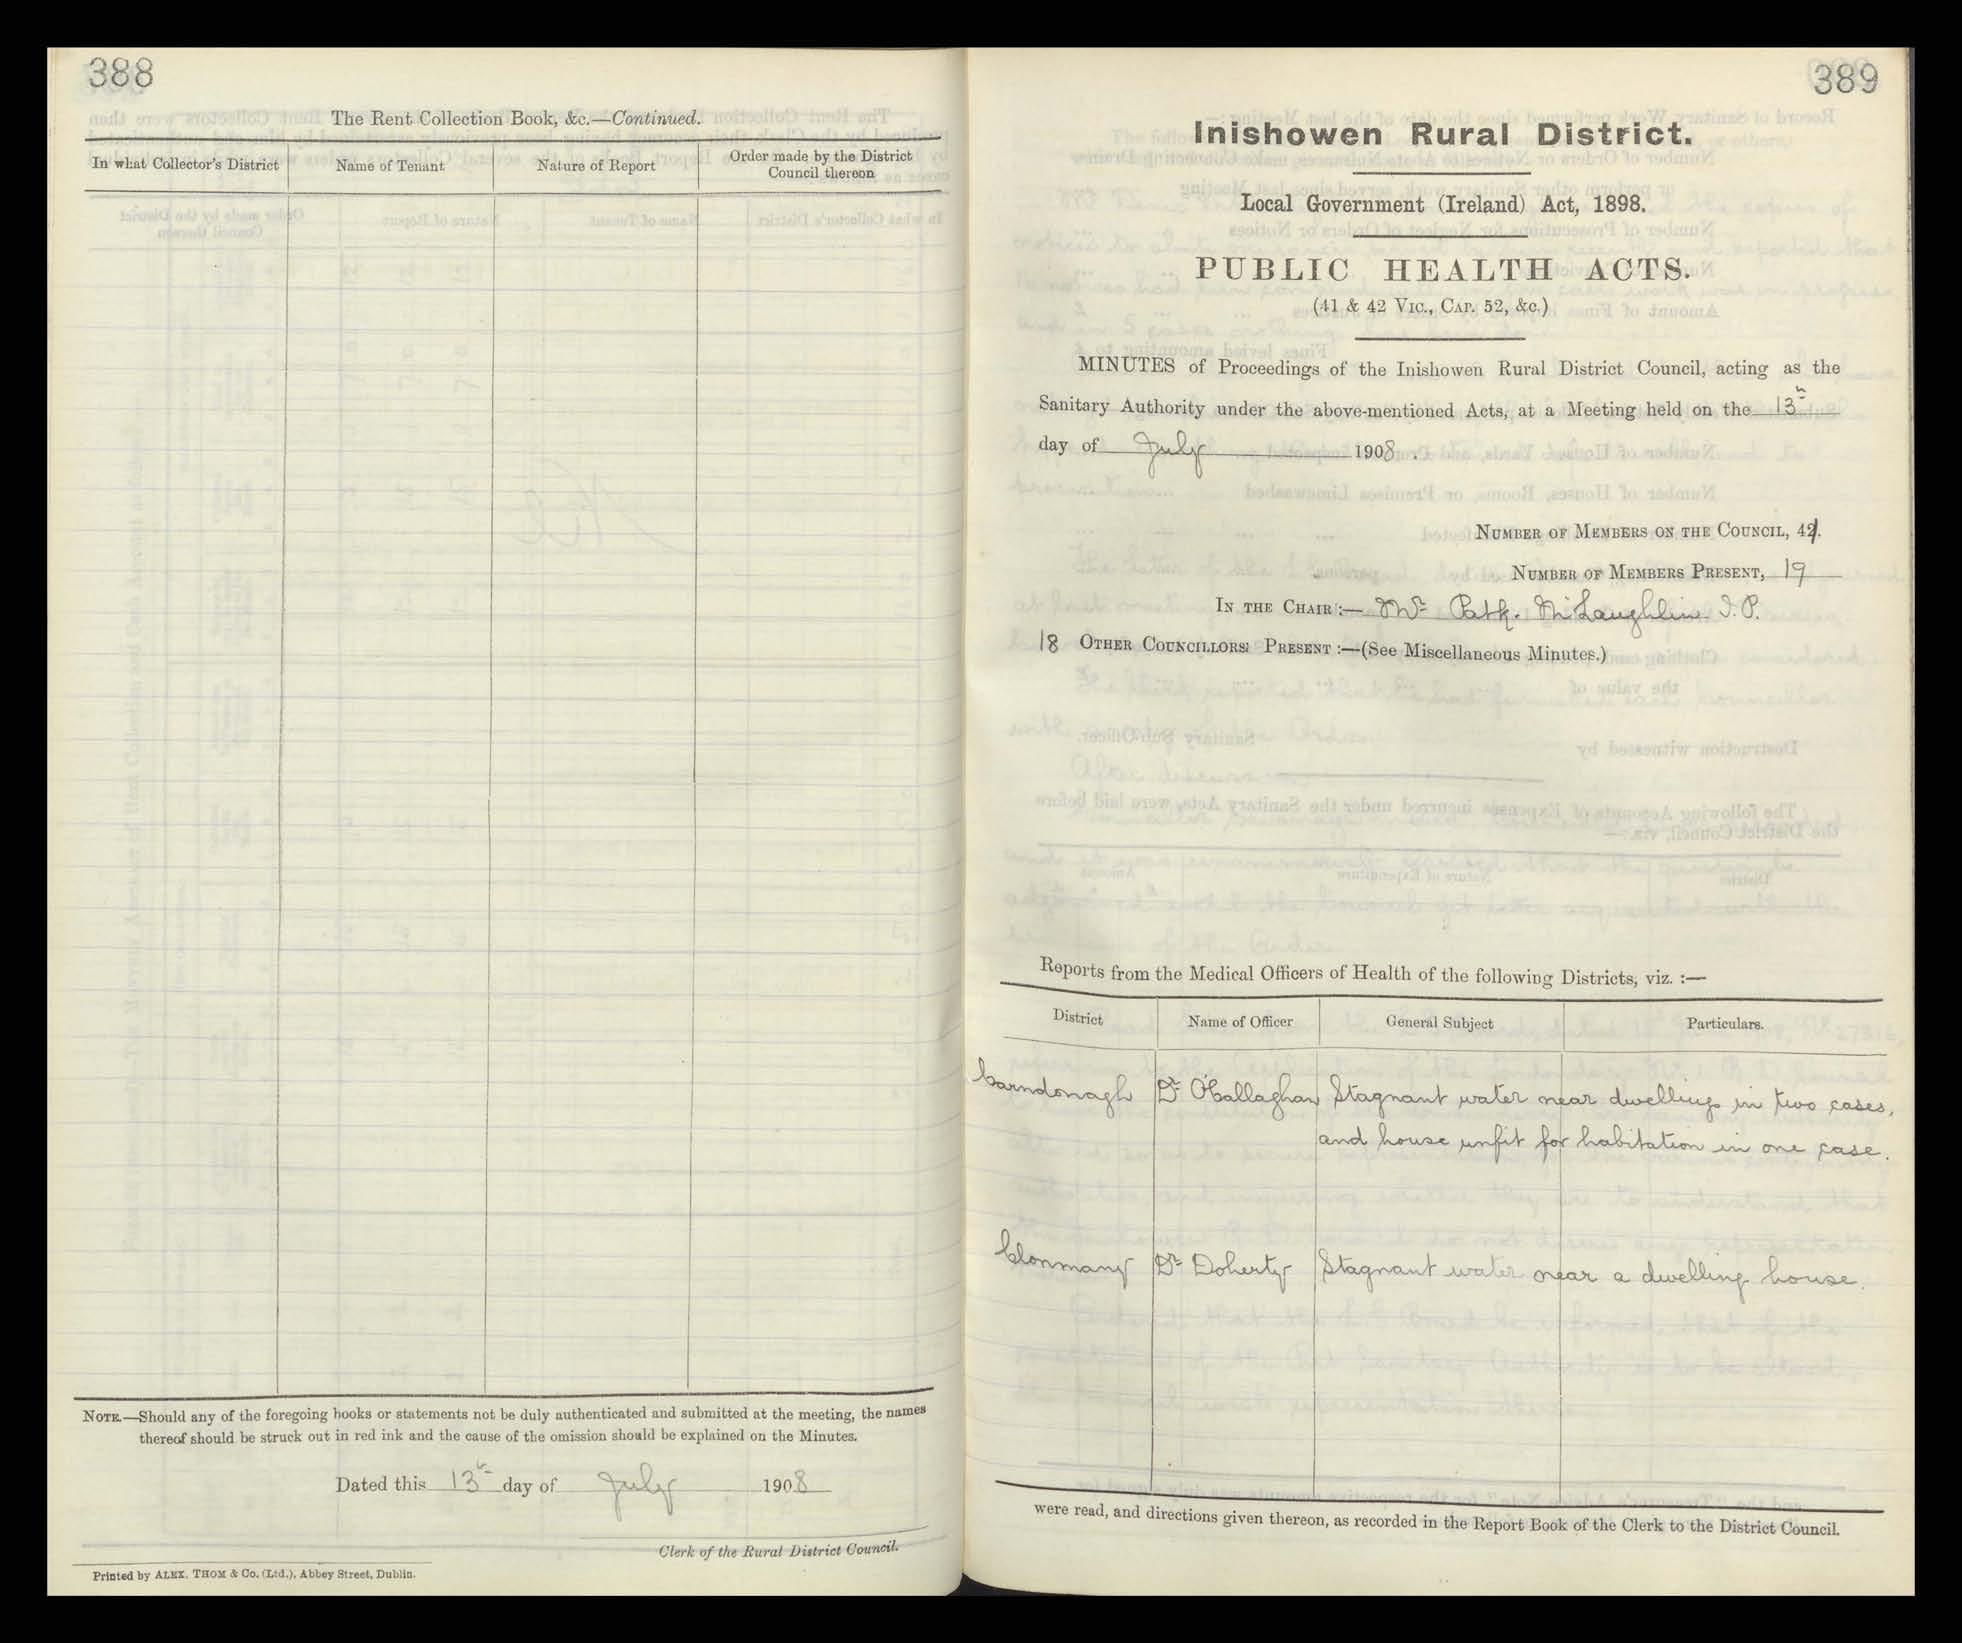 388
The Rent Collection Book, &c.—Continued.
In what Collector's District | Name of Tenant | Nature of Report | Order made by the District Council thereon
NOTE.—Should any of the foregoing books or statements not be duly authenticated and submitted at the meeting, the names
thereof should be struck out in red ink and the cause of the omission should be explained on the Minutes.
Dated this 13th day of July 1908
Clerk of the Rural District Council.
Printed by ALEX. THOM & Co. (Ltd.), Abbey Street, Dublin.
389
Inishowen Rural District.
Local Government (Ireland) Act, 1898.
PUBLIC HEALTH ACTS.
(41 & 42 VIC., CAP. 52, &c.)
MINUTES of Proceedings of the Inishowen Rural District Council, acting as the
Sanitary Authority under the above-mentioned Acts, at a Meeting held on the 13th
day of July 1908.
NUMBER OF MEMBERS ON THE COUNCIL, 4
NUMBER OF MEMBERS PRESENT, 19
IN THE CHAIR:— Mr Patk. McLaughlin J.P.
18 OTHER COUNCILLORS PRESENT:—(See Miscellaneous Minutes.)
Reports from the Medical Officers of Health of the following Districts, viz. :—
District | Name of Officer | General Subject | Particulars.
Carndonagh Dr O'Callaghan Stagnant water near dwellings in two cases,
and house unfit for habitation in one case.
Clonmany Dr Doherty Stagnant water near a dwelling house.
were read, and directions given thereon, as recorded in the Report Book of the Clerk to the District Council.